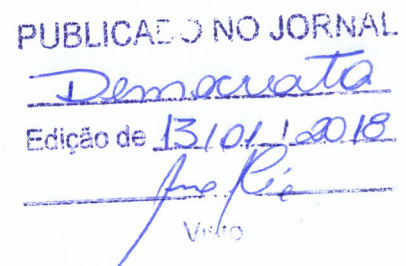 PUBLICADO NO JORNAL
Democrata
Edição de 13/01/2018
Visto